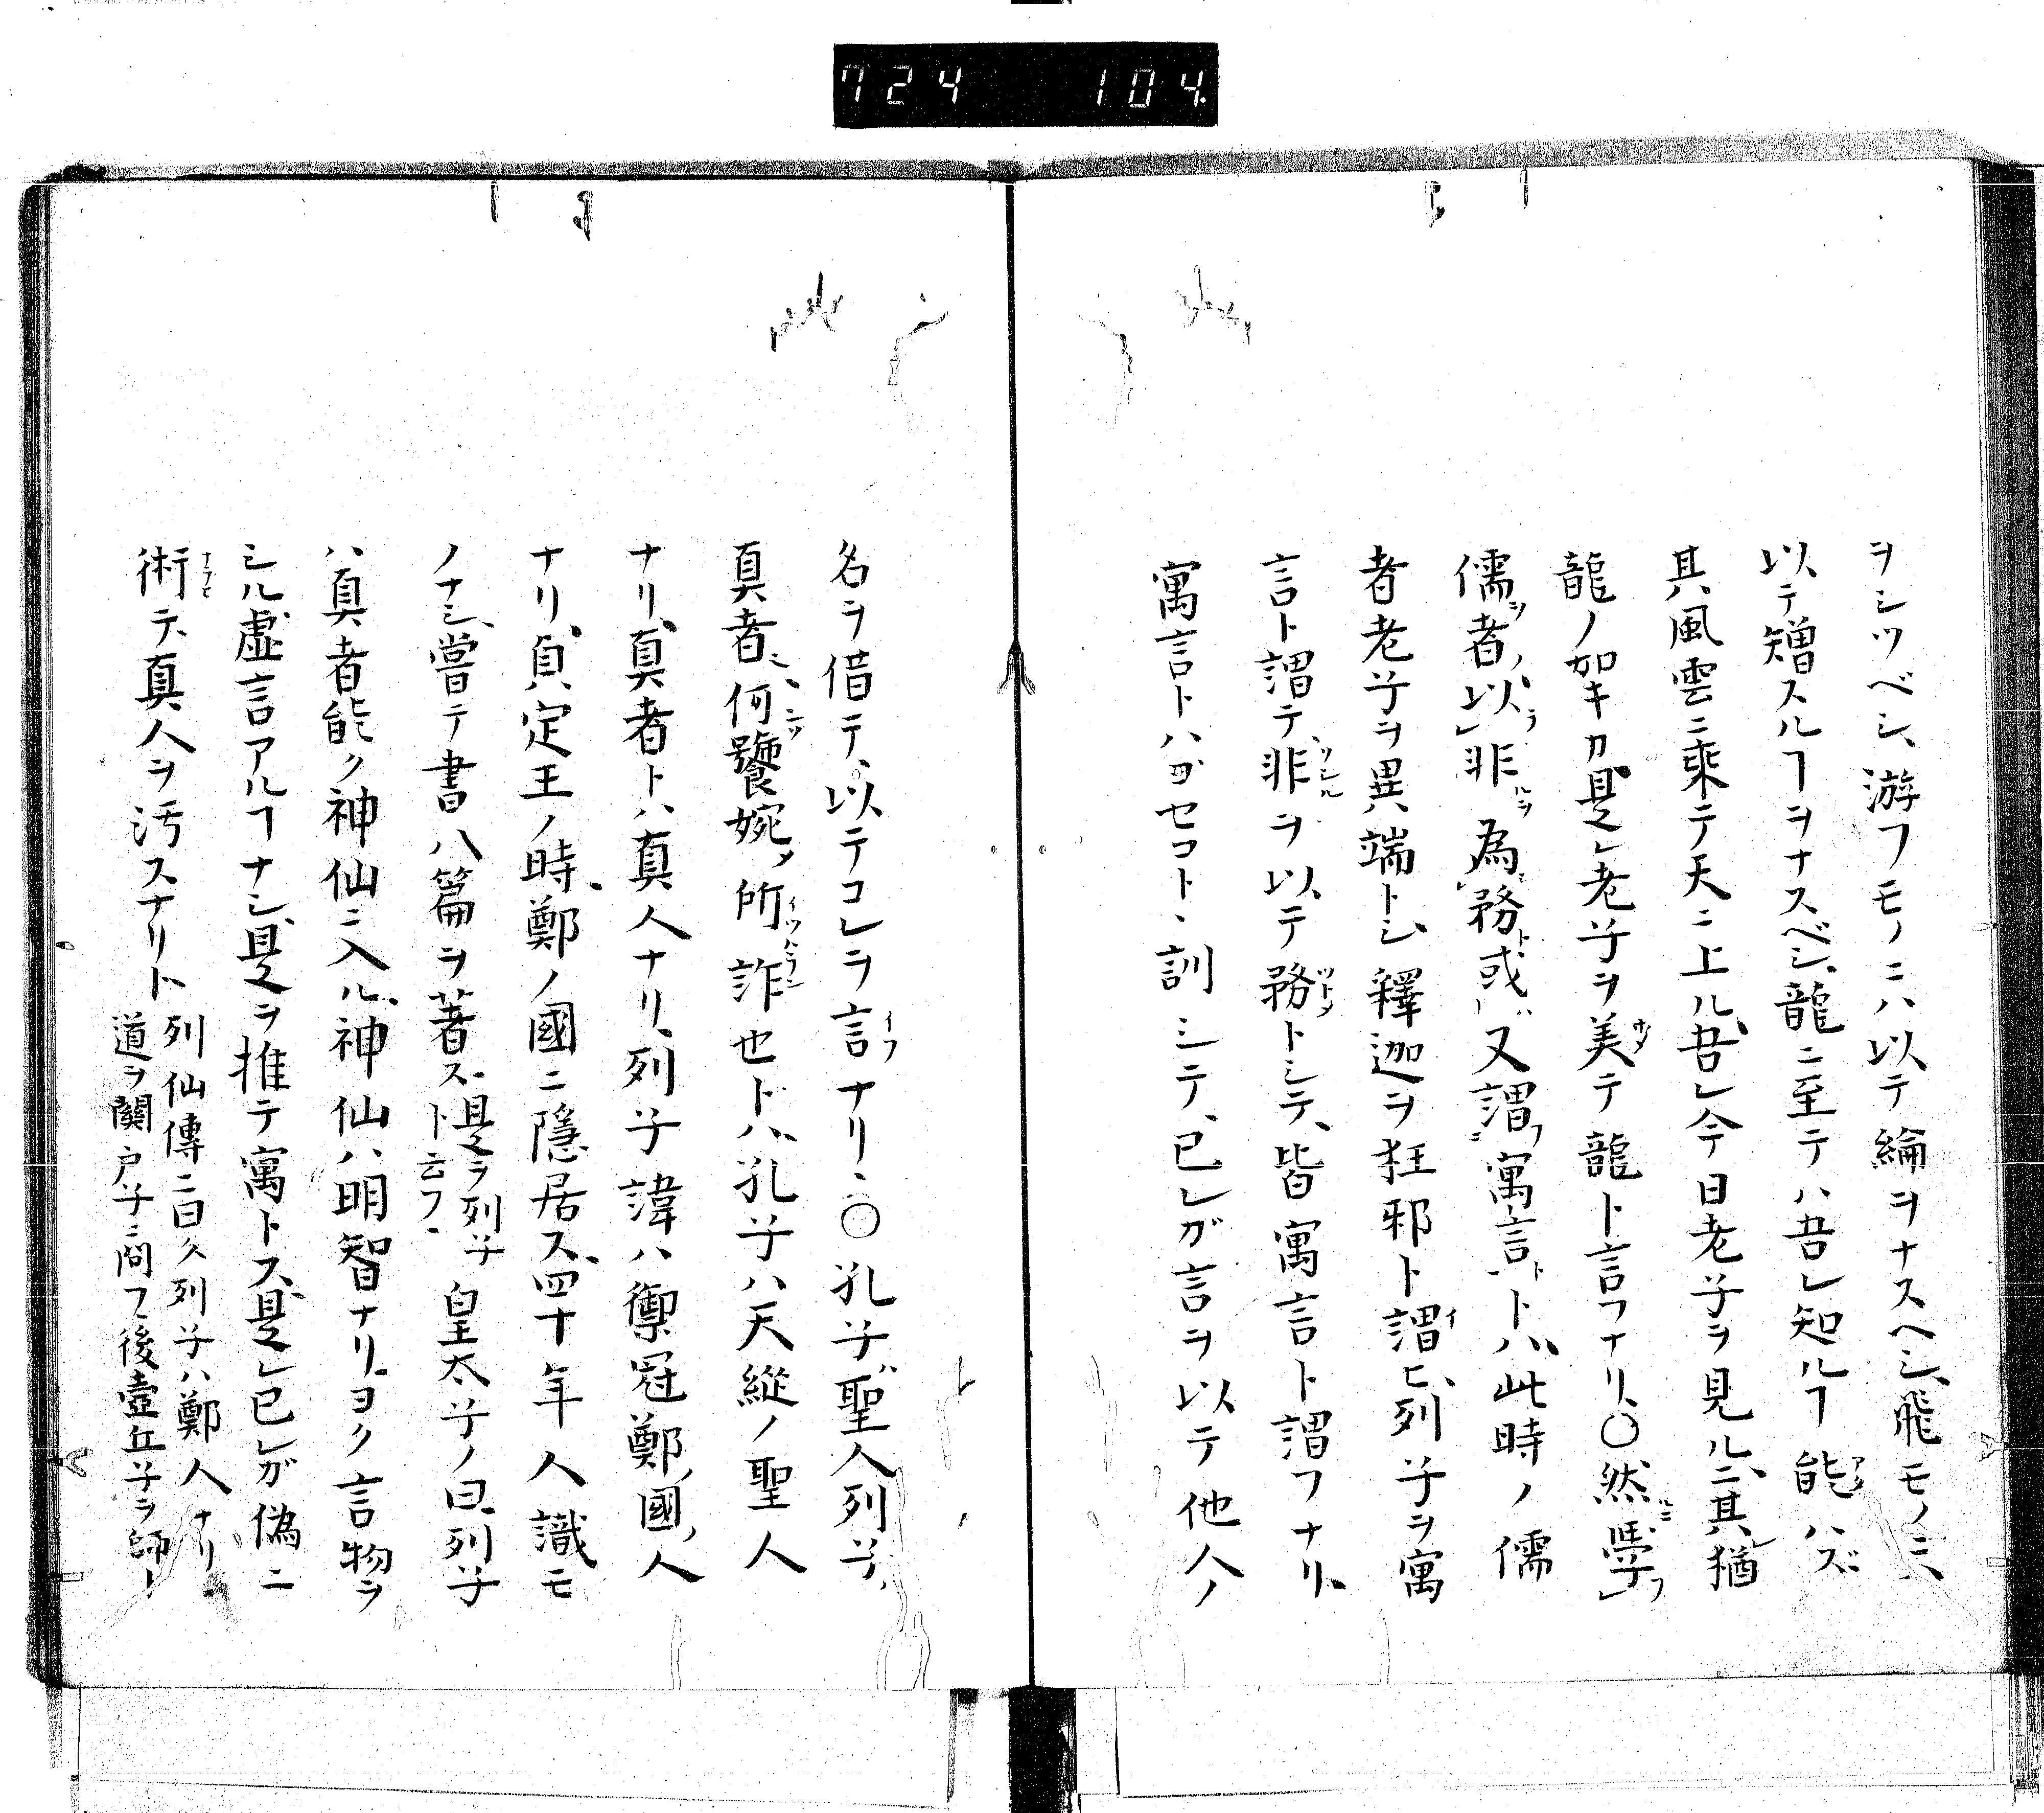 724 104
ヲシツベシ、游フモノニハ以テ綸ヲナスヘシ、飛モノニハ
以テ矰スルヿヲナスベシ、龍ニ至テハ吾レ知ルヿ能ハズ
其風雲ニ乘テ天ニ上ル、吾レ今日老子ヲ見ルニ、其猶
龍ノ如キカ是レ老子ヲ美テ龍ト言フナリ、〇然ルニ學フ
儒ヲ者ノ、以ラ非ルヲ為ニ務ト或ハ又謂フニ寓言トトハ、此時ノ儒
者老子ヲ異端トシ、釋迦ヲ狂邪ト謂ヒ、列子ヲ寓
言ト謂テ、非ヲ以テ務トシテ、皆寓言ト謂フナリ、
寓言トハヨセコト、訓シテ、已レガ言ヲ以テ他人ノ
名ヲ借テ、以テコレヲ言ナリ、〇孔子ハ聖人列子ハ
真者、何饕婉ノ所詐也トハ、孔子ハ天縱ノ聖人
ナリ、真者トハ真人ナリ、列子諱ハ禦冠鄭ノ國ノ人
ナリ、貞定王ノ時、鄭ノ國ニ隱居ス、四十年人識モ
ノナシ、嘗テ書八篇ヲ著ス、是ヲ列子ト云フ、皇太子ノ曰、列子
ハ真者能ク神仙ニ入ル、神仙ハ明智ナリ、ヨク言物ヲ
シル、虛言アルヿナシ、是ヲ推テ寓トス、是レ已レガ偽ニ
術テ、真人ヲ汚スナリト列仙傳ニ曰ク列子ハ鄭人ナリ、
道ヲ關尹子ニ問フ後壺丘子ヲ師ト